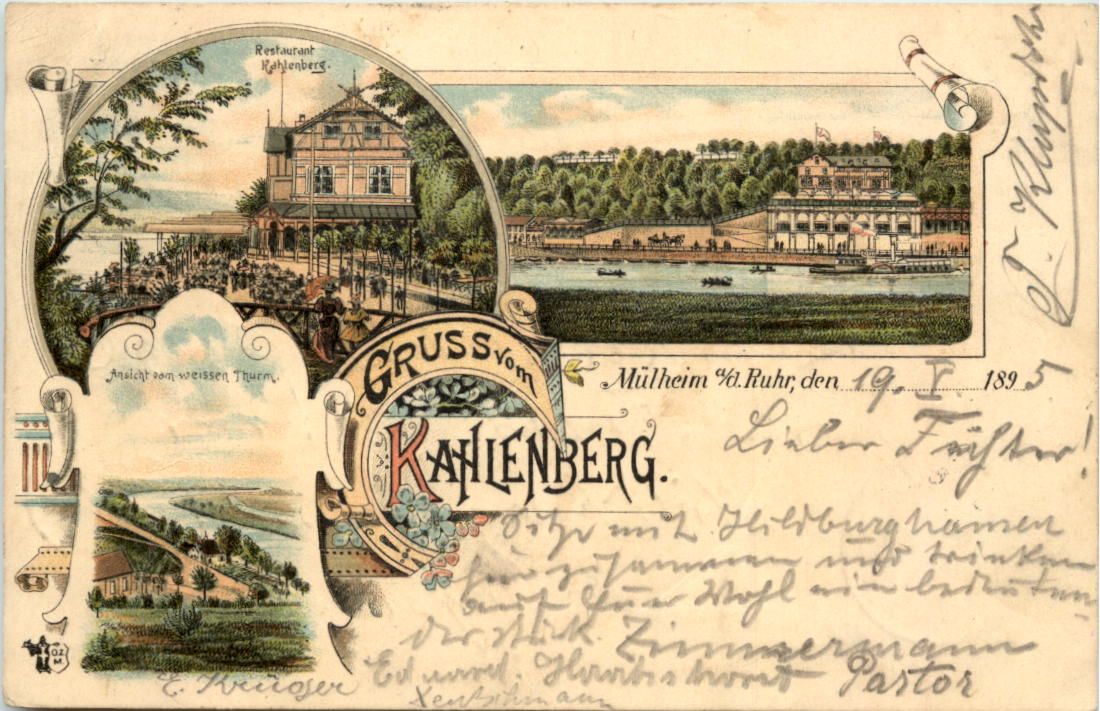 Restaurant
Kahlenberg.
Ansicht vom weissen Thurm.
GRUSS vom
KAHLENBERG.
Mülheim a/d. Ruhr, den 19. V. 1895
Lieber
Sitze mit Hildburghausen
hier zusammen und trinken
auf Euer Wohl ein bedeuten
des Stück. Zimmermann
Eduard Pastor
E. Krüger
O.Z.
M.